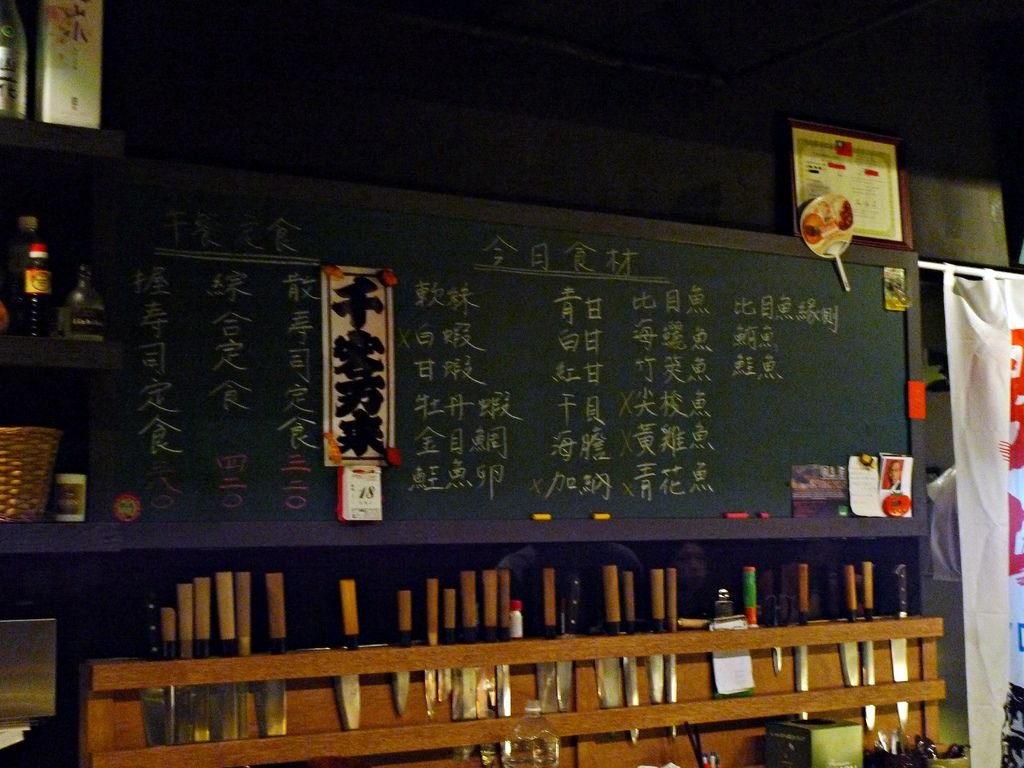 午餐定食
握寿司定食二八〇
綜合定食四二〇
散寿司定食三二〇
千客万来
18
今日食材
軟絲
x白蝦
甘蝦
牡丹蝦
金目鯛
鮭魚卵
青甘
白甘
紅甘
干貝
海膽
x加納
比目魚
海鱺魚
竹筴魚
x尖梭魚
x黃雞魚
x青花魚
比目魚緣側
鮪魚
鮭魚